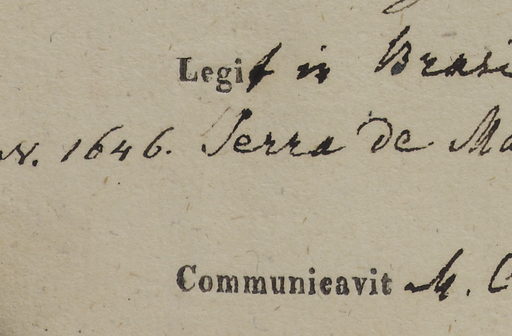 Legit in Brasi
N. 1646. Serra de Ma
Communicavit M. C